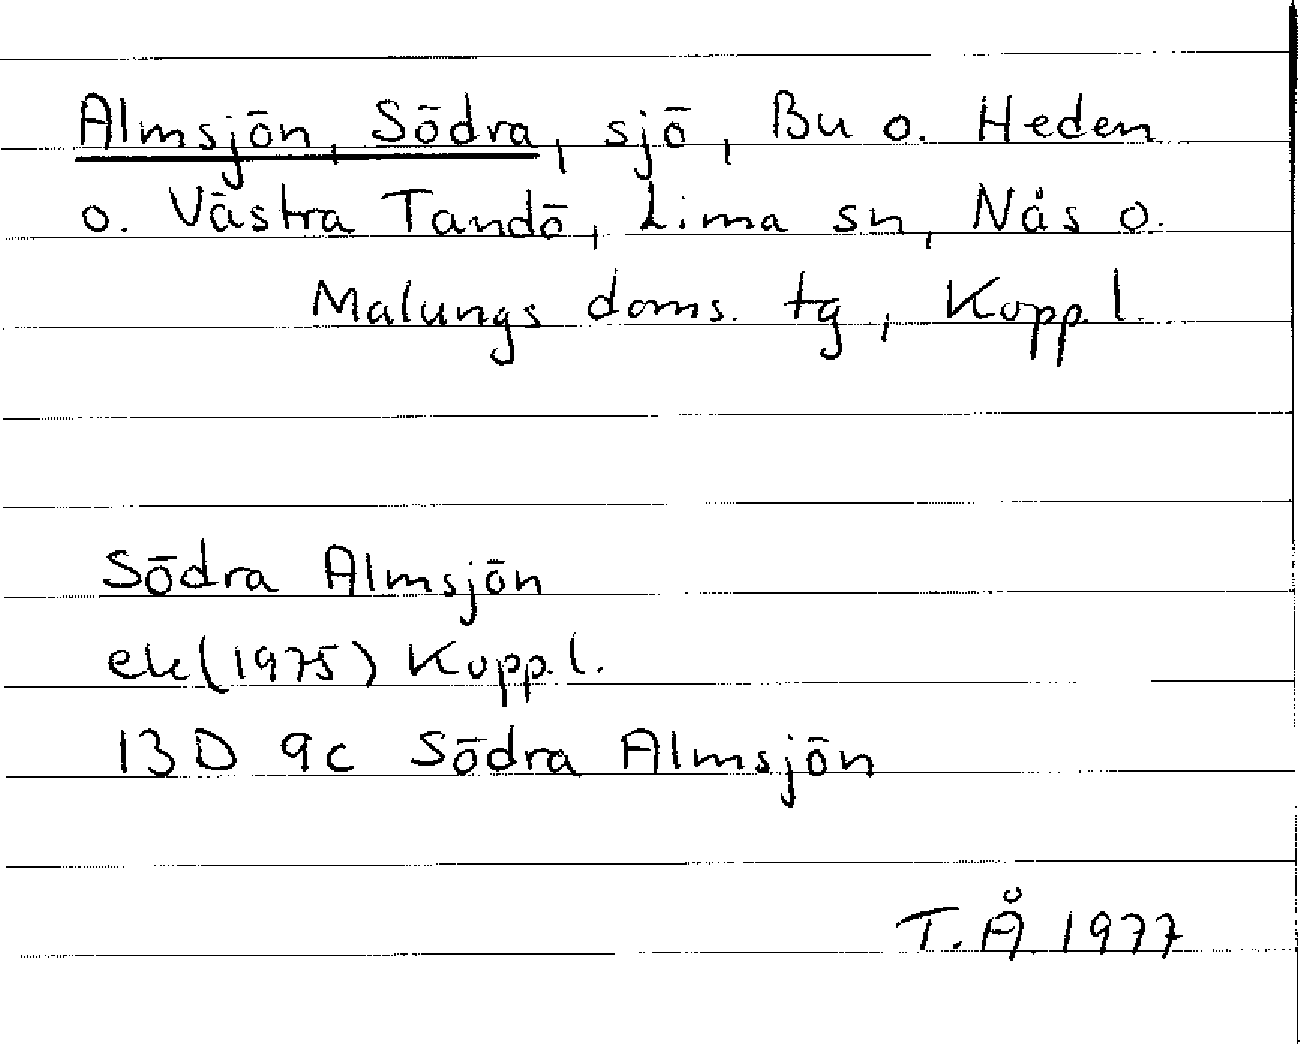 Almsjön, Södra, sjö, Bu o. Heden
o. Västra Tandö, Lima sn, Nås o.
Malungs doms. tg, Kopp. l.
Södra Almsjön
ek (1975) Kopp. l.
13D 9c Södra Almsjön
T. Å. 1977